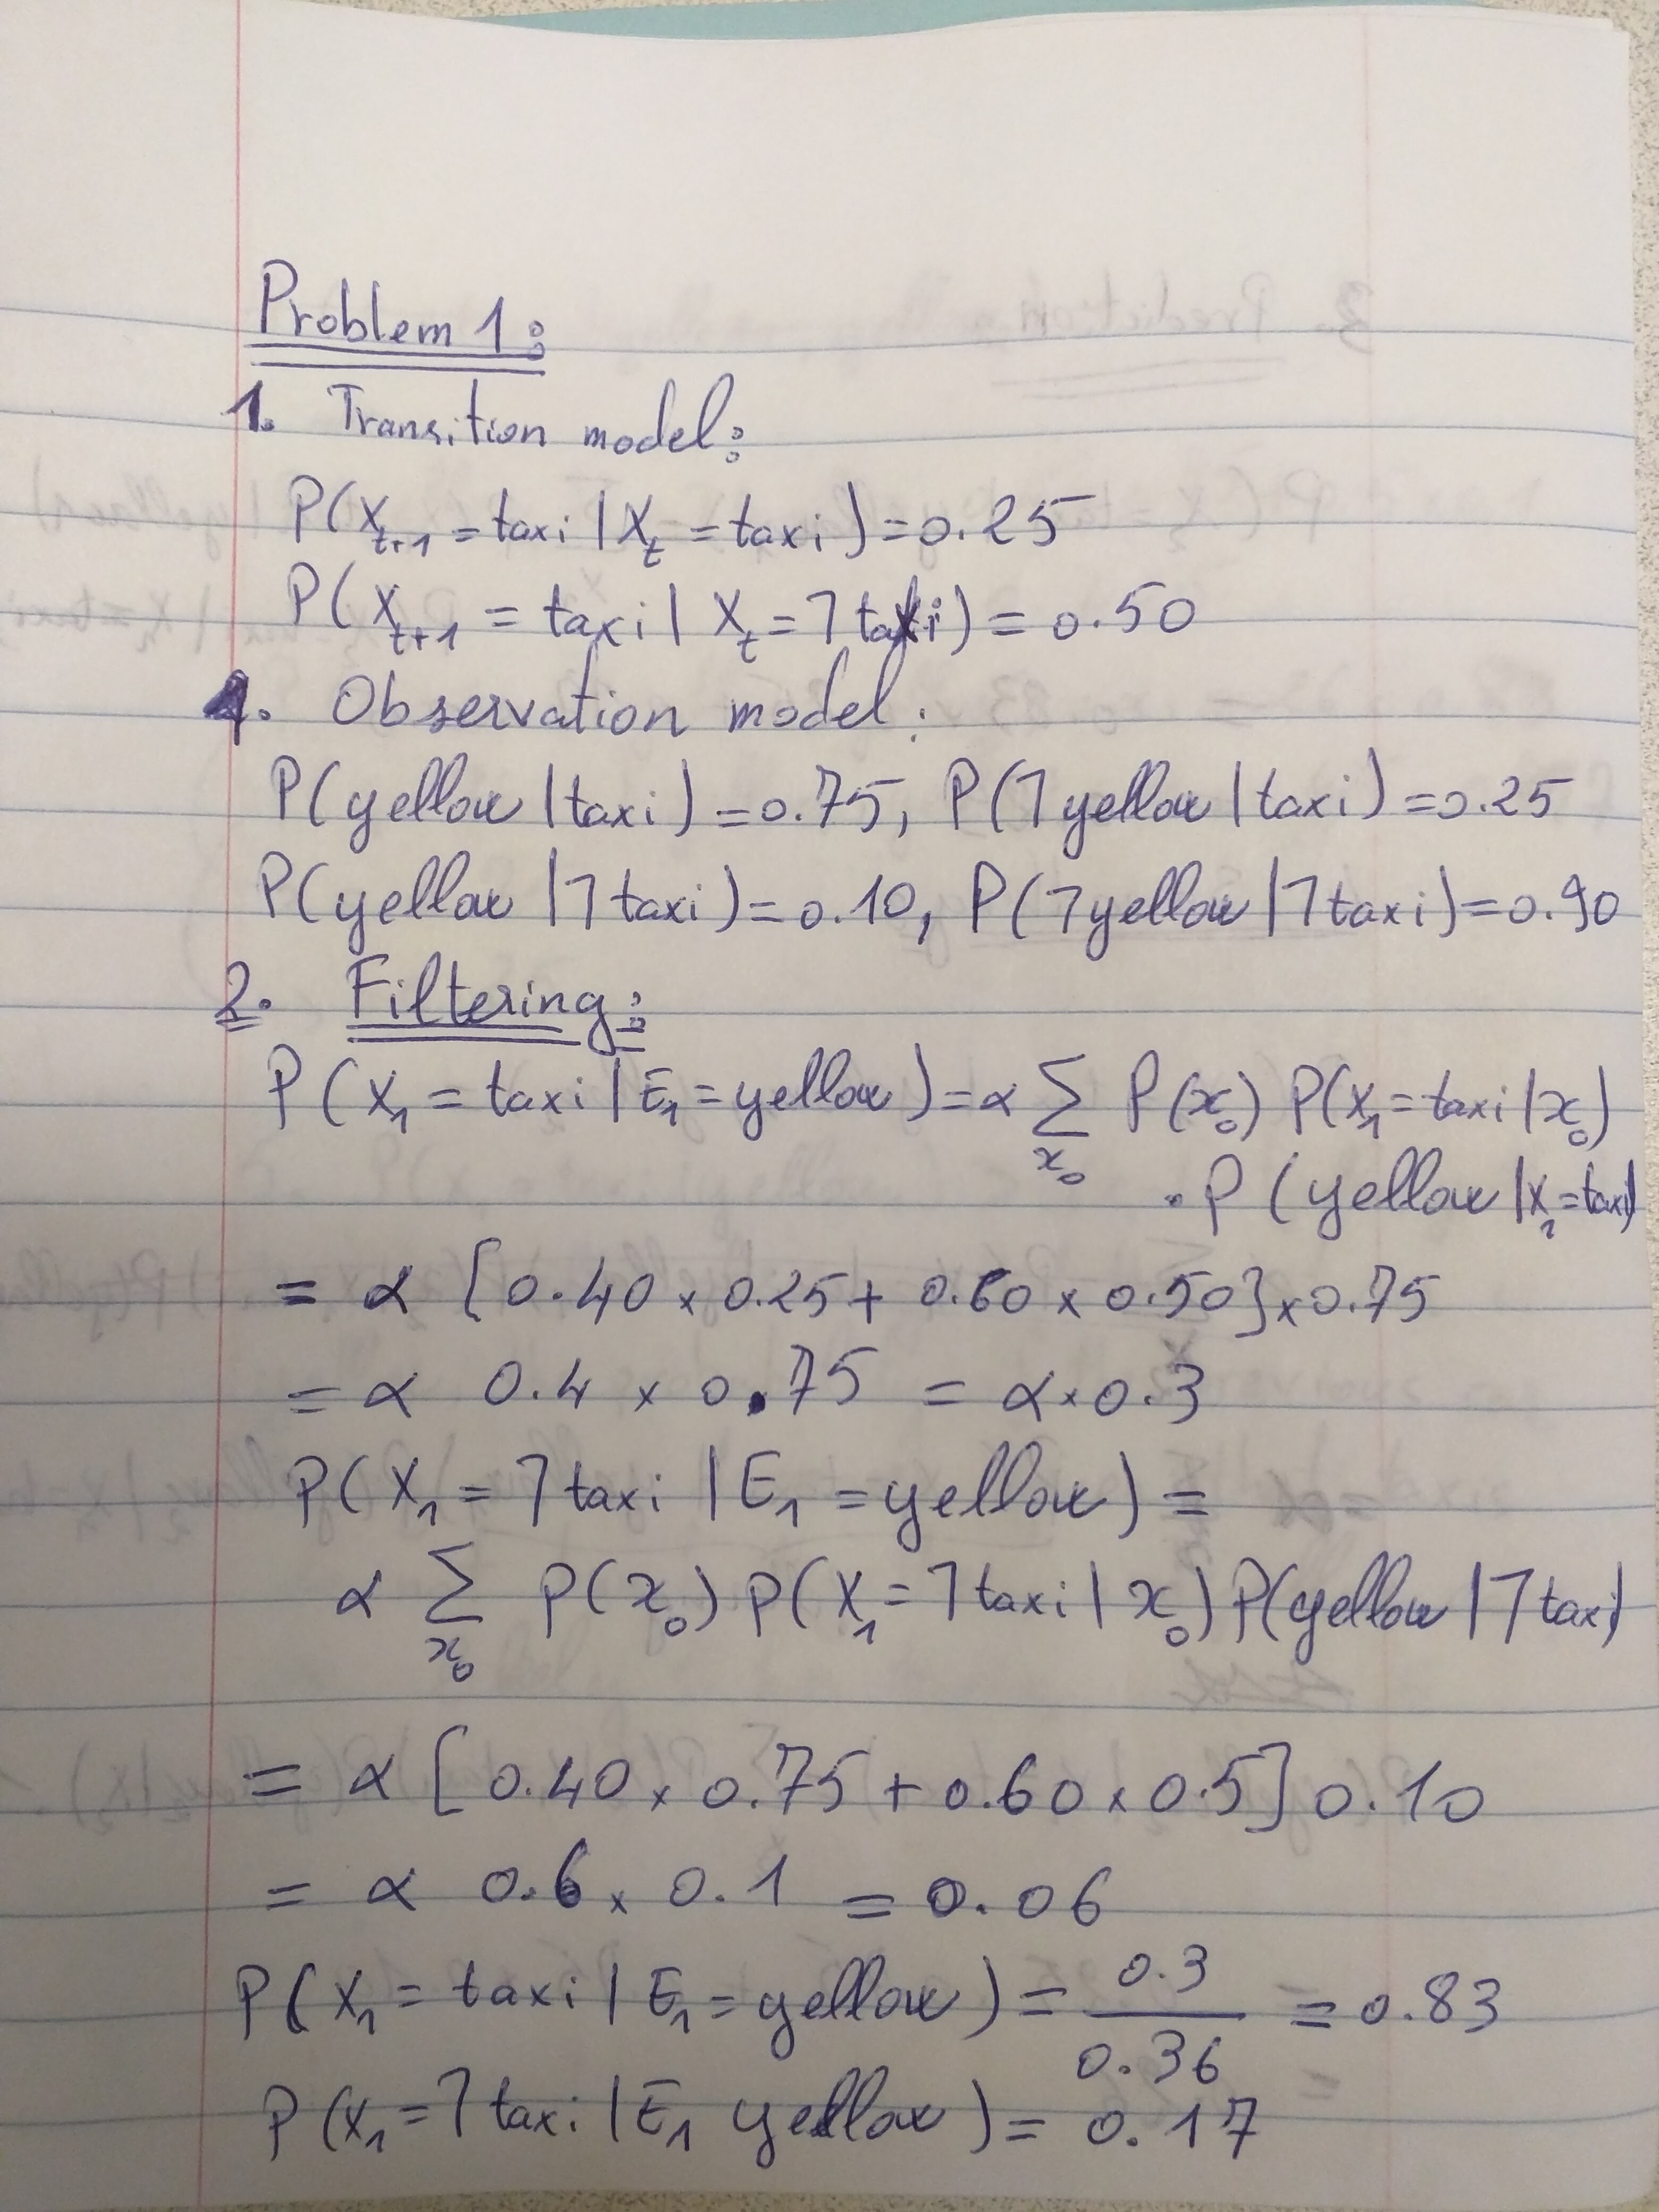 Problem 1:
1. Transition model:
P(X_{t+1} = taxi | X_t = taxi) = 0.25
P(X_{t+1} = taxi | X_t = ¬taxi) = 0.50
1. Observation model:
P(yellow | taxi) = 0.75, P(¬yellow | taxi) = 0.25
P(yellow | ¬taxi) = 0.10, P(¬yellow | ¬taxi) = 0.90
2. Filtering:
P(X_1 = taxi | E_1 = yellow) = α ∑_{x_0} P(x_0) P(X_1 = taxi | x_0)
· P(yellow | X_1 = taxi)
= α [0.40 × 0.25 + 0.60 × 0.50] × 0.75
= α 0.4 × 0.75 = α × 0.3
P(X_1 = ¬taxi | E_1 = yellow) =
α ∑_{x_0} P(x_0) P(X_1 = ¬taxi | x_0) P(yellow | ¬taxi)
= α [0.40 × 0.75 + 0.60 × 0.5] 0.10
= α 0.6 × 0.1 = 0.06
P(X_1 = taxi | E_1 = yellow) = 0.3 / 0.36 = 0.83
P(X_1 = ¬taxi | E_1 yellow) = 0.17